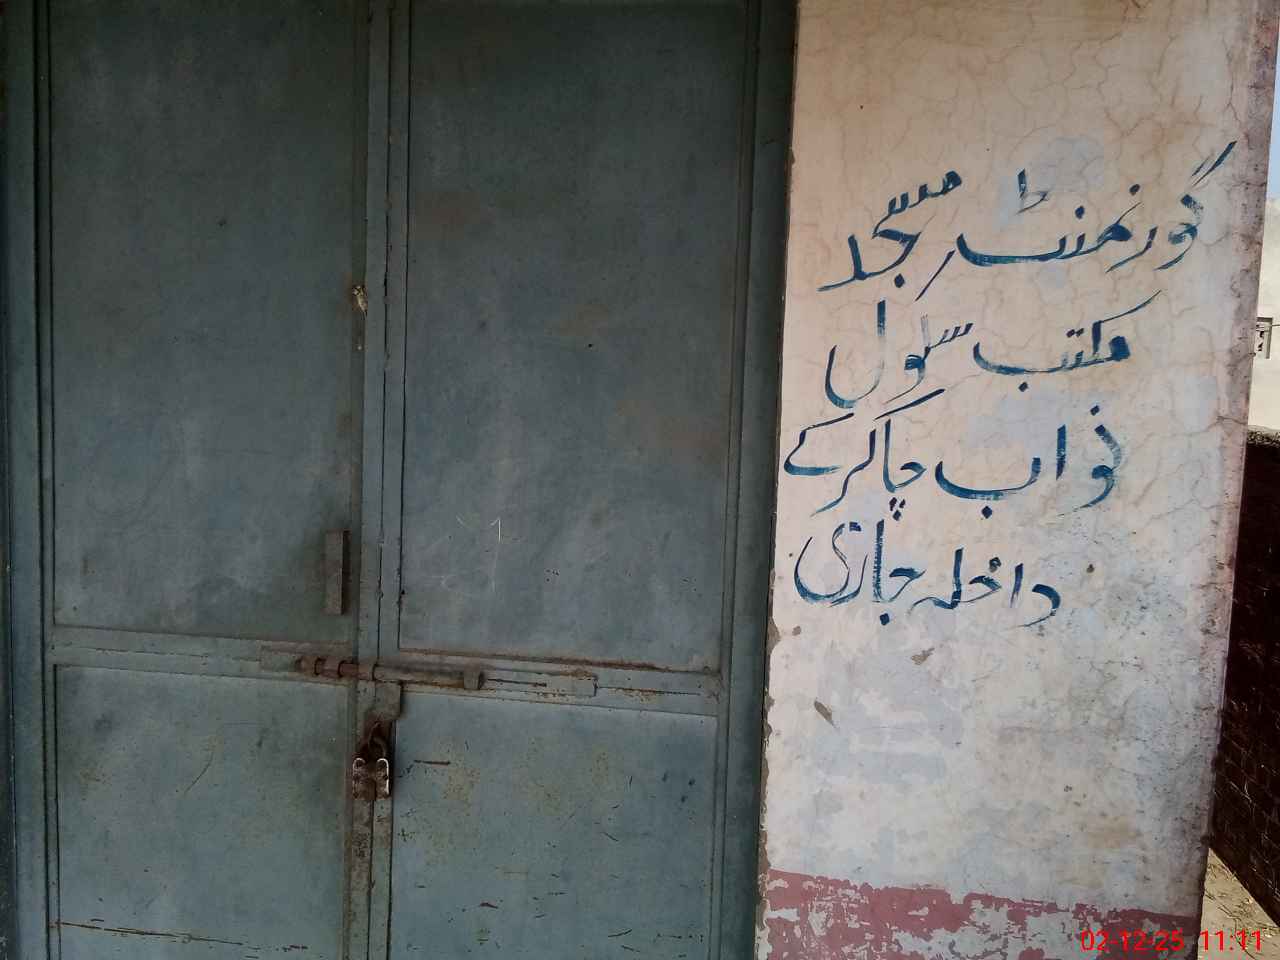 گورنمنٹ مسجد
مکتب سکول
نواب چاکر کے
داخلہ جاری
02-12-25 11:11